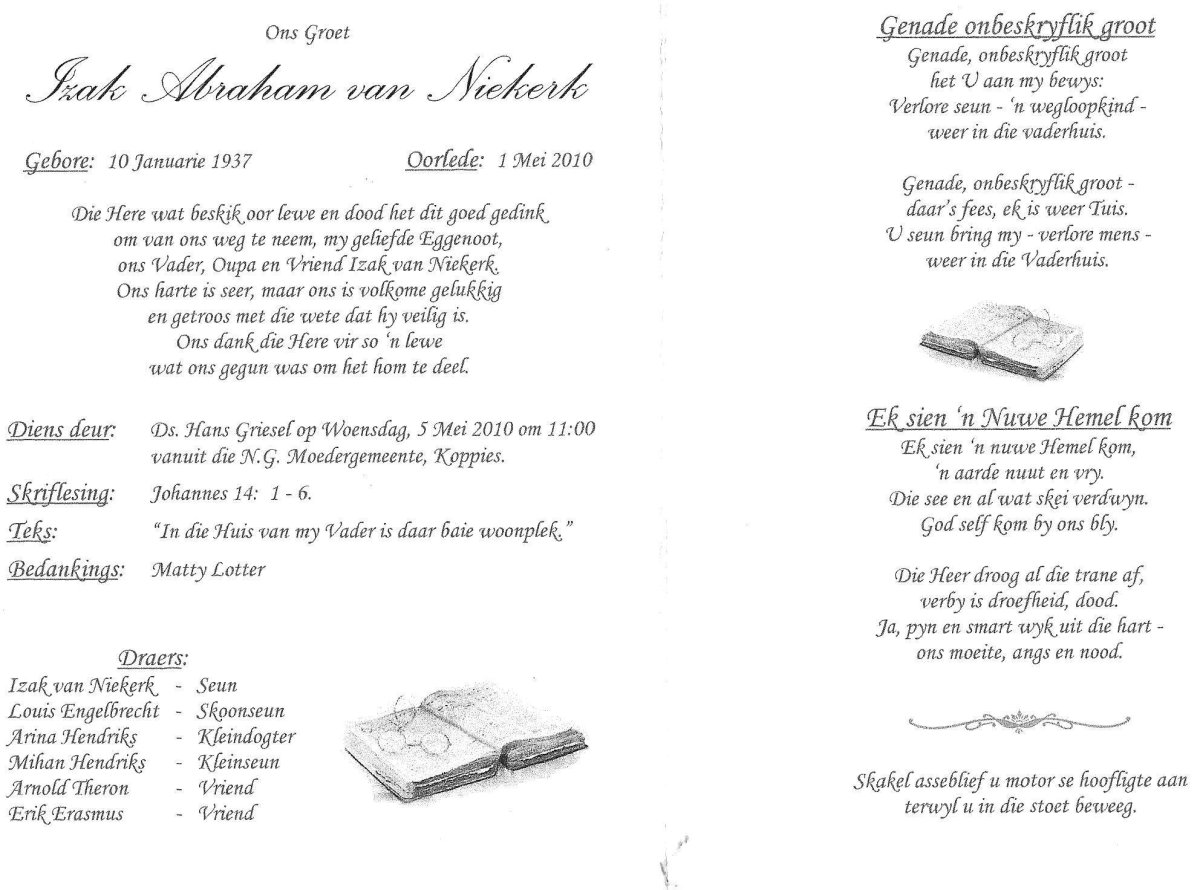 Ons Groet
Izak Abraham van Niekerk
Gebore: 10 Januarie 1937 Oorlede: 1 Mei 2010
Die Here wat beskik oor lewe en dood het dit goed gedink
om van ons weg te neem, my geliefde Eggenoot,
ons Vader, Oupa en Vriend Izak van Niekerk.
Ons harte is seer, maar ons is volkome gelukkig
en getroos met die wete dat hy veilig is.
Ons dank die Here vir so 'n lewe
wat ons gegun was om het hom te deel.
Diens deur: Ds. Hans Griesel op Woensdag, 5 Mei 2010 om 11:00
vanuit die N.G. Moedergemeente, Koppies.
Skriflesing: Johannes 14: 1 - 6.
Teks: "In die Huis van my Vader is daar baie woonplek."
Bedankings: Matty Lotter
Draers:
Izak van Niekerk - Seun
Louis Engelbrecht - Skoonseun
Arina Hendriks - Kleindogter
Mihan Hendriks - Kleinseun
Arnold Theron - Vriend
Erik Erasmus - Vriend
Genade onbeskryflik groot
Genade, onbeskryflik groot
het U aan my bewys:
Verlore seun - 'n wegloopkind -
weer in die vaderhuis.
Genade, onbeskryflik groot -
daar's fees, ek is weer Tuis.
U seun bring my - verlore mens -
weer in die Vaderhuis.
Ek sien 'n Nuwe Hemel kom
Ek sien 'n nuwe Hemel kom,
'n aarde nuut en vry.
Die see en al wat skei verdwyn.
God self kom by ons bly.
Die Heer droog al die trane af,
verby is droefheid, dood.
Ja, pyn en smart wyk uit die hart -
ons moeite, angs en nood.
Skakel asseblief u motor se hoofligte aan
terwyl u in die stoet beweeg.